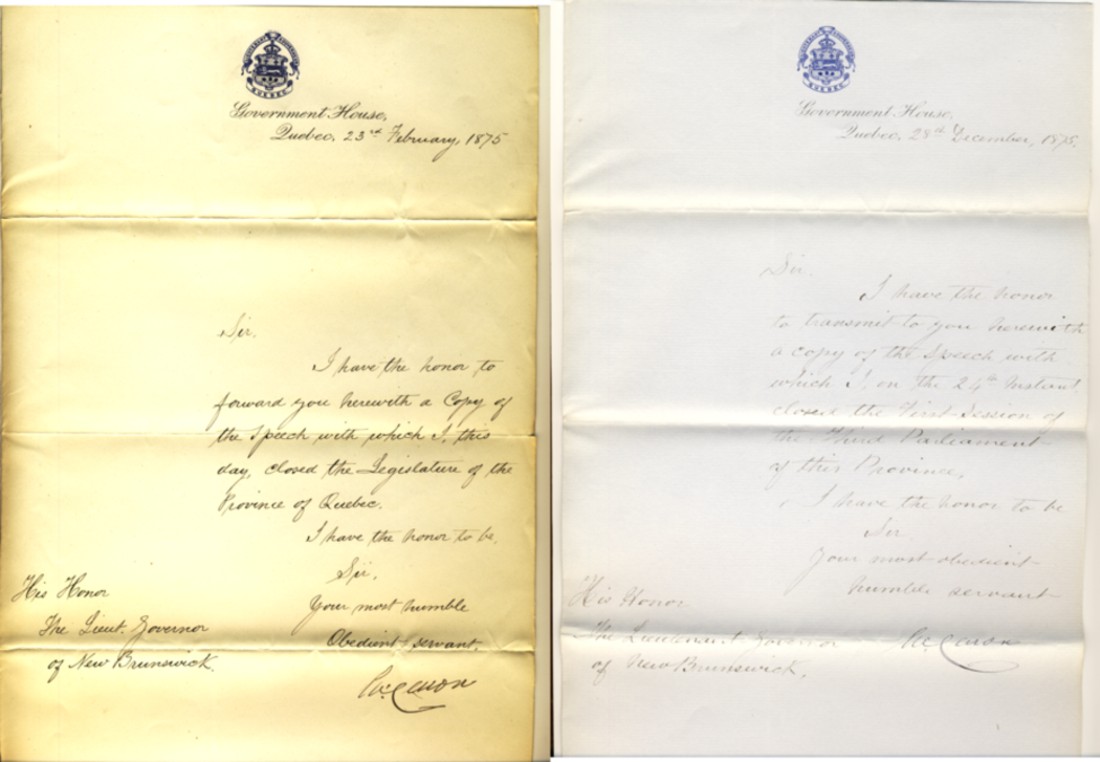 QUEBEC
Government House,
Quebec, 23rd February, 1875
Sir.
I have the honor to
forward you herewith a Copy of
the Speech with which I, this
day, closed the Legislature of the
Province of Quebec.
I have the honor to be,
Sir,
Your most humble
Obedient servant,
His Honor
The Lieut. Governor
of New Brunswick.
QUEBEC
Government House,
Quebec, 28th December, 1875.
Sir.
I have the honor
to transmit to you herewith
a copy of the speech with
which I, on the 24th Instant
closed the First Session of
the Third Parliament
of this Province.
I have the honor to be
Sir
Your most obedient
humble servant
His Honor
The Lieutenant Governor
of New Brunswick.